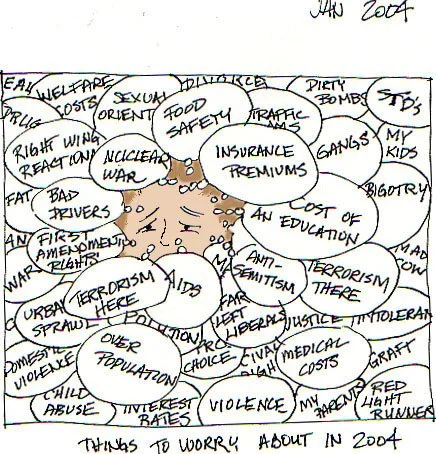 JAN 2004
WELFARE
COSTS
SEXUAL
ORIENT
DIVORCE
FOOD
SAFETY
TRAFFIC
DIRTY
BOMBS
STD'S
RIGHT WING
NUCLEAR
WAR
INSURANCE
PREMIUMS
GANGS
MY
KIDS
FAT
BAD
DRIVERS
COST OF
AN EDUCATION
BIGOTRY
FIRST
AMENDMENT
RIGHTS
WAR
MAD
COW
TERRORISM
HERE
AIDS
ANTI-
SEMITISM
TERRORISM
THERE
URBAN
SPRAWL
POLLUTION
FAR
LEFT
LIBERALS
OVER
POPULATION
PRO
CHOICE
MEDICAL
COSTS
GRAFT
DOMESTIC
VIOLENCE
CHILD
ABUSE
INTEREST
RATES
VIOLENCE
MY PARENTS
RED
LIGHT
RUNNER
THINGS TO WORRY ABOUT IN 2004